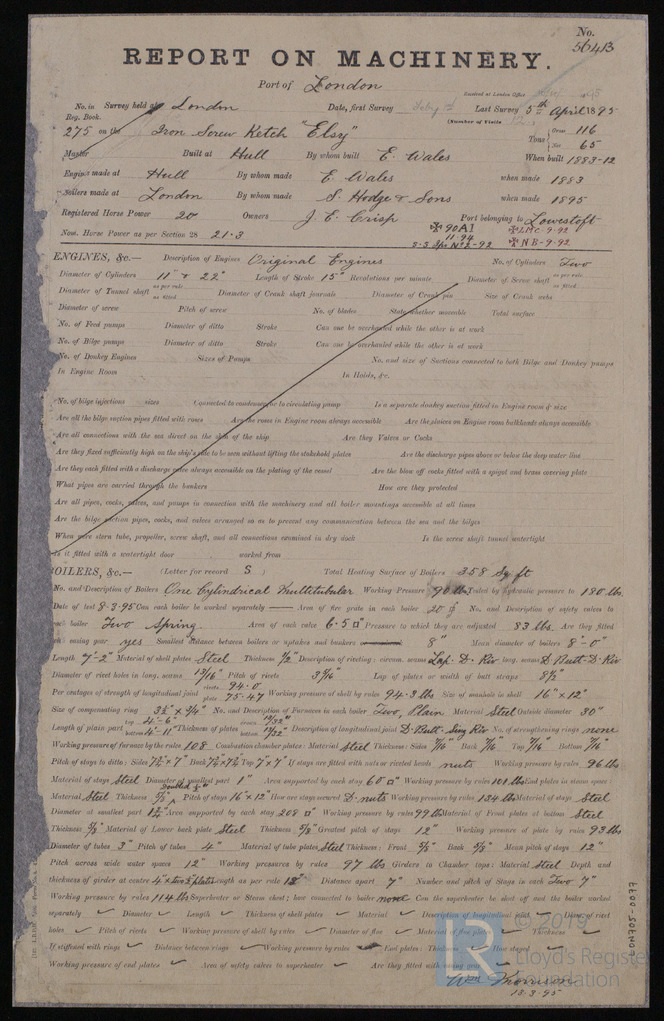 No.
56413
REPORT ON MACHINERY.
Port of London
Received at London Office
No. in Survey held at London Date, first Survey Last Survey 5th April 1895
Reg. Book. (Number of Visits
275 on the Iron Screw Ketch "Elsy" Tons Gross 116 Net 65
Master Built at Hull By whom built E. Wales When built 1883-12
Engines made at Hull By whom made E. Wales when made 1883
Boilers made at London By whom made S. Hodge & Sons when made 1895
Registered Horse Power 20 Owners J. E. Crisp Port belonging to Lowestoft
Nom. Horse Power as per Section 28 21.3 ✠ 90A1 11-94 ✠ LMC-9-92 ✠ NB-9-92
ENGINES, &c.— Description of Engines Original Engines No. of Cylinders Two
Diameter of Cylinders 11" & 22" Length of Stroke 15" Revolutions per minute Diameter of Screw shaft as per rule as fitted
Diameter of Tunnel shaft as per rule as fitted Diameter of Crank shaft journals Diameter of Crank pin Size of Crank webs
Diameter of screw Pitch of screw No. of blades State whether moveable Total surface
No. of Feed pumps Diameter of ditto Stroke Can one be overhauled while the other is at work
No. of Bilge pumps Diameter of ditto Stroke Can one be overhauled while the other is at work
No. of Donkey Engines Sizes of Pumps No. and size of Suctions connected to both Bilge and Donkey pumps
In Engine Room In Holds, &c.
No. of bilge injections sizes Connected to condenser, or to circulating pump Is a separate donkey suction fitted in Engine room & size
Are all the bilge suction pipes fitted with roses Are the roses in Engine room always accessible Are the sluices on Engine room bulkheads always accessible
Are all connections with the sea direct on the skin of the ship Are they Valves or Cocks
Are they fixed sufficiently high on the ship's side to be seen without lifting the stokehold plates Are the discharge pipes above or below the deep water line
Are they each fitted with a discharge valve always accessible on the plating of the vessel Are the blow off cocks fitted with a spigot and brass covering plate
What pipes are carried through the bunkers How are they protected
Are all pipes, cocks, valves, and pumps in connection with the machinery and all boiler mountings accessible at all times
Are the bilge suction pipes, cocks, and valves arranged so as to prevent any communication between the sea and the bilges
When were stern tube, propeller, screw shaft, and all connections examined in dry dock Is the screw shaft tunnel watertight
Is it fitted with a watertight door worked from
BOILERS, &c.— (Letter for record S ) Total Heating Surface of Boilers 358 Sq ft
No. and Description of Boilers One Cylindrical Multitubular Working Pressure 90 lbs Tested by hydraulic pressure to 180 lbs
Date of test 8-3-95 Can each boiler be worked separately — Area of fire grate in each boiler 20 No. and Description of safety valves to
each boiler Two Spring Area of each valve 6.5 □" Pressure to which they are adjusted 83 lbs. Are they fitted
with easing gear yes Smallest distance between boilers or uptakes and bunkers 8" Mean diameter of boilers 8'-0"
Length 7-2" Material of shell plates Steel Thickness 1/2" Description of riveting: circum. seams Lap. D. Riv long. seams D Butt. D. Riv
Diameter of rivet holes in long. seams 13/16" Pitch of rivets 3 5/16" Lap of plates or width of butt straps 8 1/2"
Per centages of strength of longitudinal joint rivets 94.0 plate 75.47 Working pressure of shell by rules 94.3 lbs Size of manhole in shell 16" x 12"
Size of compensating ring 3 1/2" x 3/4" No. and Description of Furnaces in each boiler Two, Plain Material Steel Outside diameter 30"
Length of plain part top 4'-6" bottom 4'-11" Thickness of plates crown 13/32" bottom 13/32" Description of longitudinal joint D. Butt. Sing Riv No. of strengthening rings none
Working pressure of furnace by the rules 108 Combustion chamber plates: Material Steel Thickness: Sides 7/16" Back 7/16" Top 7/16" Bottom 7/16"
Pitch of stays to ditto: Sides 7 1/2" x 7" Back 7 1/2" x 7 1/2" Top 7" x 7" If stays are fitted with nuts or riveted heads nuts Working pressure by rules 96 lbs
Material of stays Steel Diameter at smallest part 1" Area supported by each stay 60 □" Working pressure by rules 101 lbs End plates in steam space:
Material Steel Thickness 5/8" Doubled 1/2" Pitch of stays 16" x 12" How are stays secured D. nuts Working pressure by rules 134 lbs Material of stays Steel
Diameter at smallest part Area supported by each stay 204 □" Working pressure by rules 99 lbs Material of Front plates at bottom Steel
Thickness 5/8" Material of Lower back plate Steel Thickness 5/8" Greatest pitch of stays 12" Working pressure of plate by rules 93 lbs
Diameter of tubes 3" Pitch of tubes 4" Material of tube plates Steel Thickness: Front 5/8" Back 5/8" Mean pitch of stays 12"
Pitch across wide water spaces 12" Working pressures by rules 97 lbs Girders to Chamber tops: Material Steel Depth and
thickness of girder at centre 4" x two 1/2" plates Length as per rule 18" Distance apart 7" Number and pitch of Stays in each Two 7"
Working pressure by rules 114 lbs Superheater or Steam chest; how connected to boiler none Can the superheater be shut off and the boiler worked
separately Diameter Length Thickness of shell plates Material Description of longitudinal joint Diam. of rivet
holes Pitch of rivets Working pressure of shell by rules Diameter of flue Material of flue plates Thickness
If stiffened with rings Distance between rings Working pressure by rules End plates: Thickness How stayed
Working pressure of end plates Area of safety valves to superheater Are they fitted with easing gear
Wm Morrison
13-3-95
LON705-0077
© 2019
Lloyd's Register
Foundation